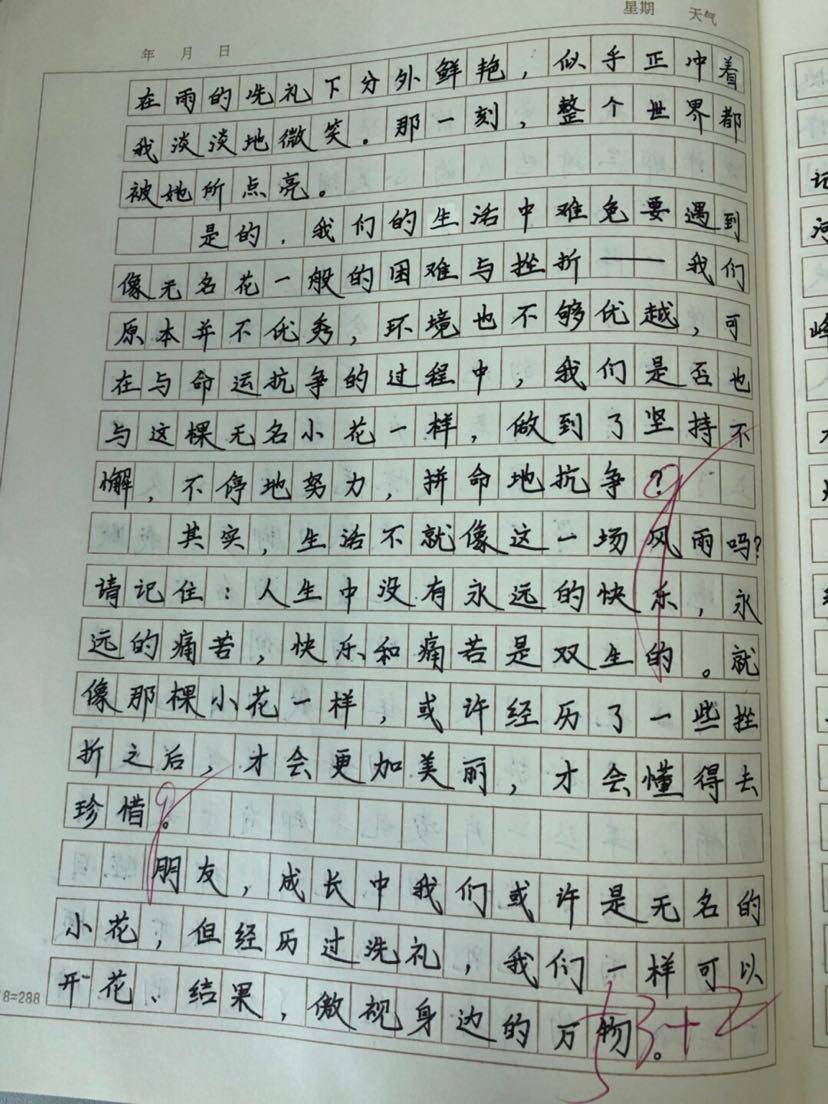 年 月 日 星期 天气
在雨的洗礼下分外鲜艳，似乎正冲着
我淡淡地微笑。那一刻，整个世界都
被她所点亮。
是的，我们的生活中难免要遇到
像无名花一般的困难与挫折——我们
原本并不优秀，环境也不够优越，可
在与命运抗争的过程中，我们是否也
与这棵无名小花一样，做到了坚持不
懈，不停地努力，拼命地抗争？
其实，生活不就像这一场风雨吗？
请记住：人生中没有永远的快乐，永
远的痛苦，快乐和痛苦是双生的。就
像那棵小花一样，或许经历了一些挫
折之后，才会更加美丽，才会懂得去
珍惜。
朋友，成长中我们或许是无名的
小花，但经历过洗礼，我们一样可以
开花、结果，傲视身边的万物。
8=288
53+2